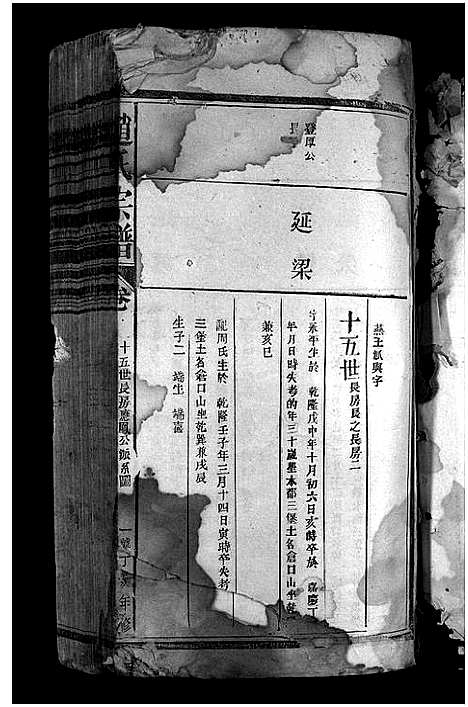 十五世 長房長之長房二
登厚公
長
延梁
字永平生於 乾隆戊申年十月初六日亥時卒於 嘉慶丁
年月日時失考的年三十歲墓本都三堡土名倉口山坐乾
兼亥巳
配周氏生於 乾隆壬子年三月十四日寅時卒失考
三堡土名倉口山坐乾巽兼戌辰
生子二 端生 端喜
趙氏宗譜 卷
十五世長房應鳳公派系圖
丁 年修